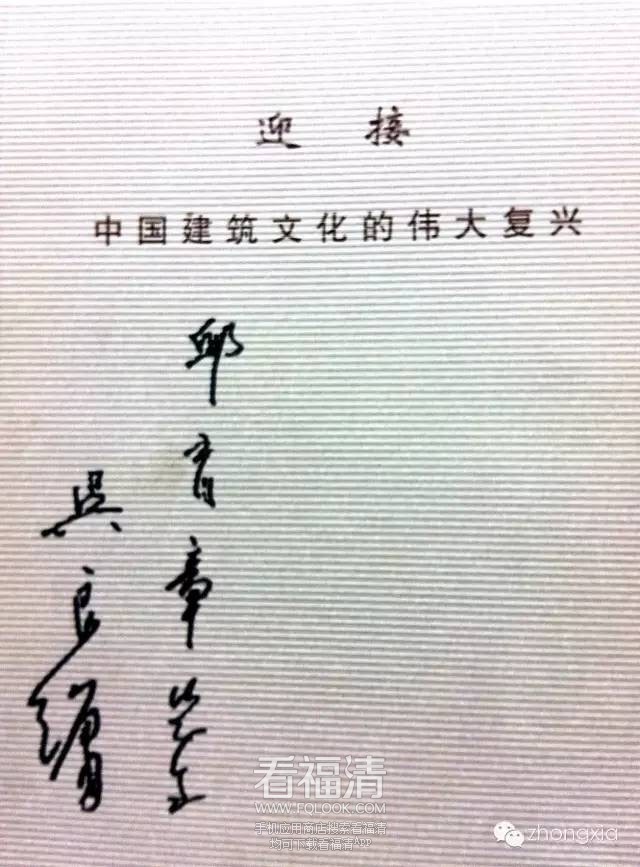 迎接
中国建筑文化的伟大复兴
邱育章
吴良镛
看福清
WWW.FQLOOK.COM
手机应用商店搜索看福清
均可下载看福清APP
zhongxia